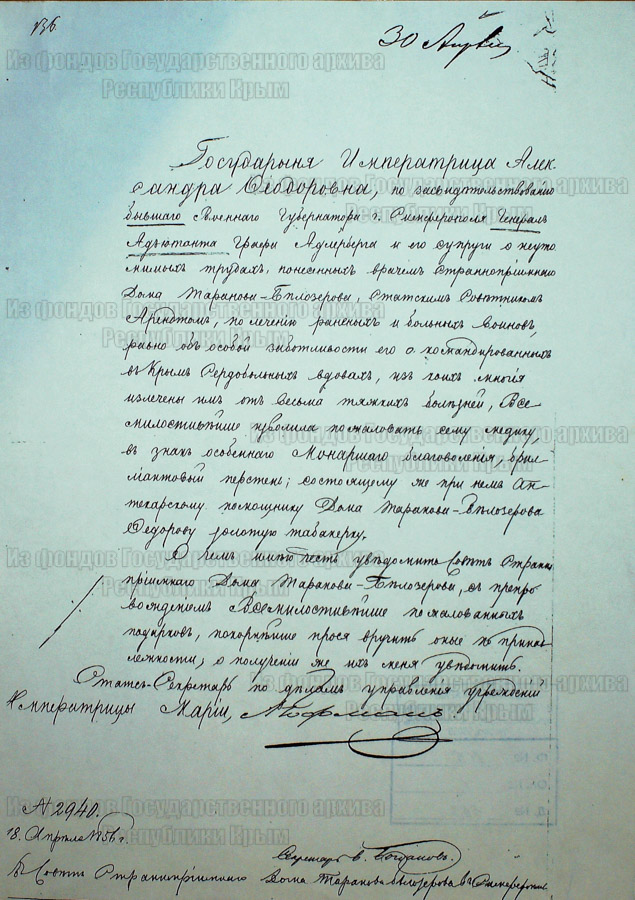 136.
30 Апрѣля
Из фондов Государственного архива
Республики Крым
Государыня Императрица Алек-
сандра Ѳеодоровна, по засвидѣтельствованію
бывшаго Военнаго Губернатора г. Симферополя Генералъ
Адъютанта Графа Адлерберга и его супруги о неуто
мимыхъ трудахъ, понесенныхъ врачемъ Страннопріимнаго
Дома Таранова-Бѣлозерова, Статскимъ Совѣтникомъ
Арендтомъ, по леченію раненыхъ и больныхъ воиновъ,
равно объ особой заботливости его о командированныхъ
въ Крымъ Сердобольныхъ вдовахъ, изъ коихъ многія
излечены имъ отъ весьма тяжкихъ болѣзней, Все-
милостивѣйше изволила пожаловать сему медику,
въ знакъ особеннаго Монаршаго благоволенія, брил-
ліантовый перстень; состоящему же при немъ Ап-
текарскому помощнику Дома Таранова-Бѣлозерова
Ѳедорову золотую табакерку.
О чемъ имѣю честь увѣдомить Совѣтъ Странно
пріимнаго Дома Таранова-Бѣлозерова, съ препро
вожденіемъ Всемилостивѣйше пожалованныхъ
подарковъ, покорнѣйше прося вручить оные по принад
лежности, о полученіи же ихъ меня увѣдомить.
Статсъ-Секретарь по дѣламъ управленія учрежденій
Императрицы Маріи, Гофманъ.
№ 2940.
18. Апрѣля 1856 г.
Секретарь В. Богдановъ.
Въ Совѣтъ Страннопріимнаго Дома Таранова Бѣлозерова въ Симферополѣ